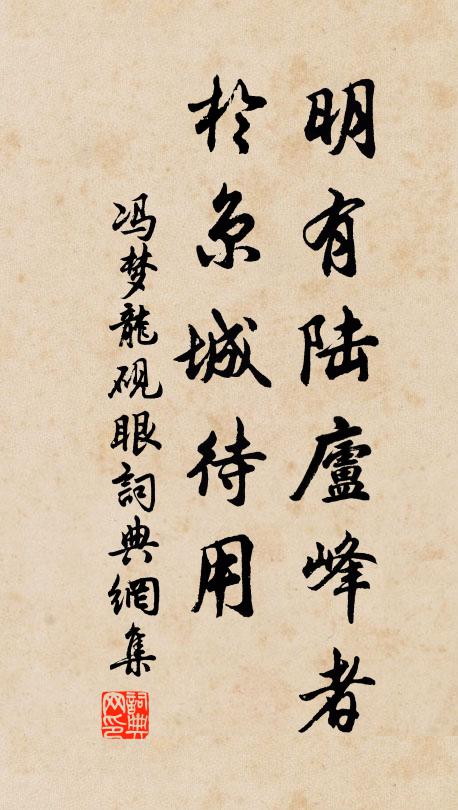 明有陆廬峰者
於京城待用
冯梦龍砚眼詞典網集
詞典
网印